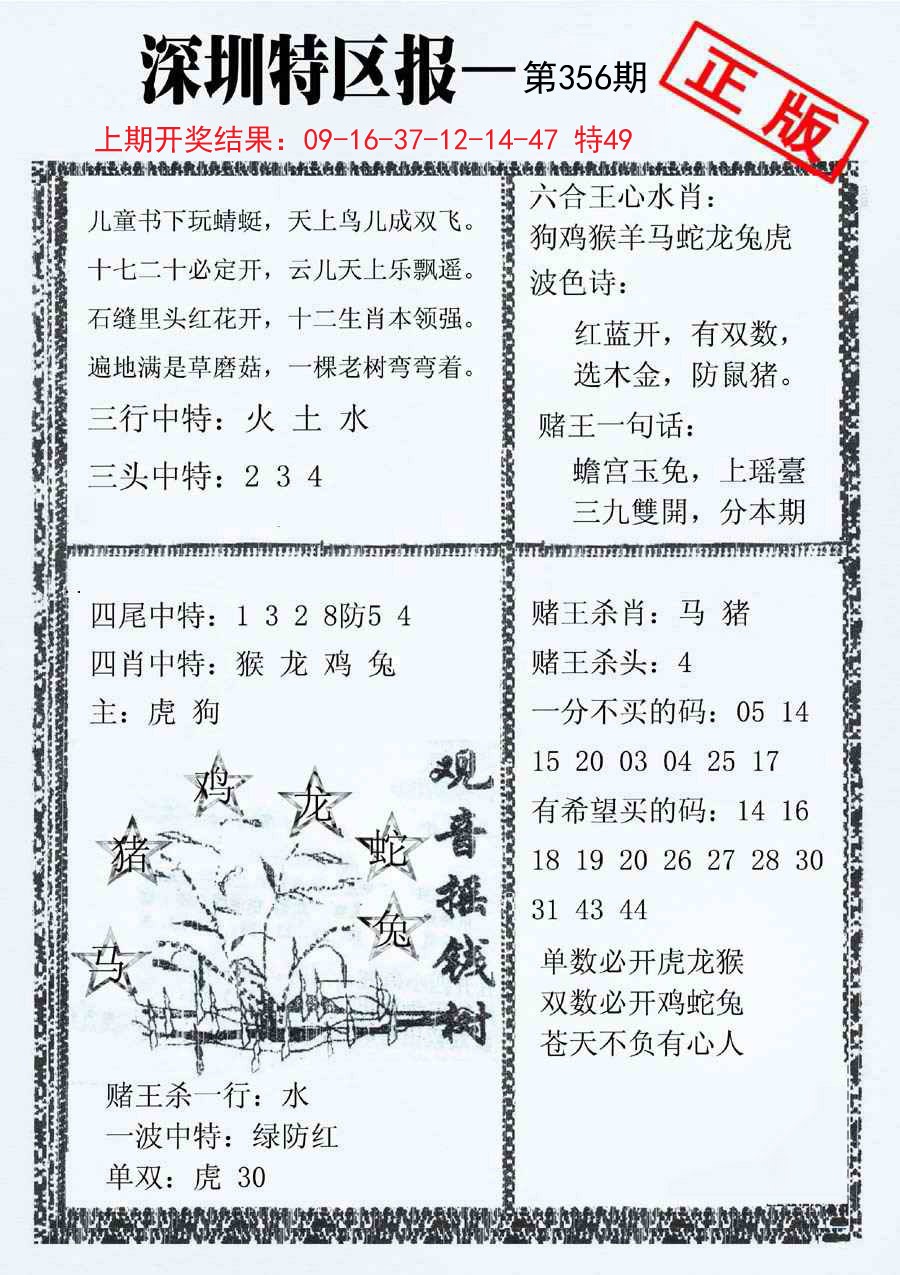 深圳特区报—第356期
正版
上期开奖结果：09-16-37-12-14-47 特49
儿童书下玩蜻蜓，天上鸟儿成双飞。
十七二十必定开，云儿天上乐飘遥。
石缝里头红花开，十二生肖本领强。
遍地满是草磨菇，一棵老树弯弯着。
三行中特：火 土 水
三头中特：2 3 4
六合王心水肖：
狗鸡猴羊马蛇龙兔虎
波色诗：
红蓝开，有双数，
选木金，防鼠猪。
赌王一句话：
蟾宫玉免，上瑶臺
三九雙開，分本期
四尾中特：1 3 2 8防5 4
四肖中特：猴 龙 鸡 兔
主：虎 狗
鸡
龙
猪
蛇
兔
马
观音摇钱树
赌王杀一行：水
一波中特：绿防红
单双：虎 30
赌王杀肖：马 猪
赌王杀头：4
一分不买的码：05 14
15 20 03 04 25 17
有希望买的码：14 16
18 19 20 26 27 28 30
31 43 44
单数必开虎龙猴
双数必开鸡蛇兔
苍天不负有心人